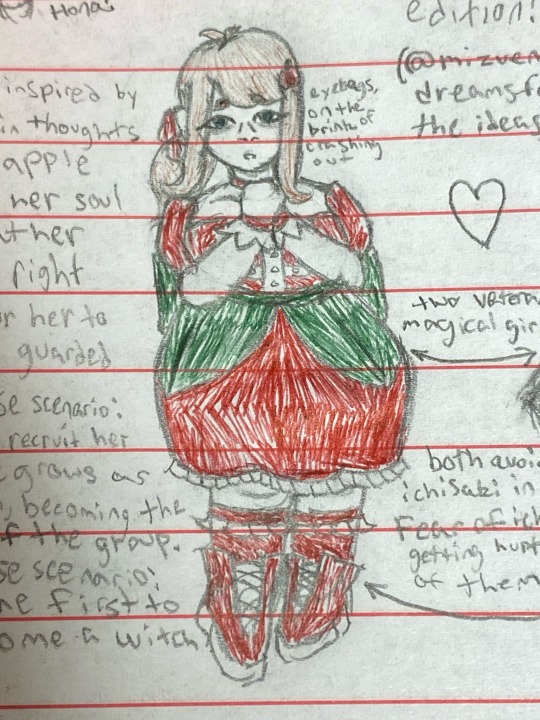 Honai
edition!
(@mizuen
dreamsfo
the ideas
inspired by
in thoughts
apple
her soul
ther
right
r her to
guarded
se scenario:
recruit her
grows as
, becoming the
f the group.
se scenario:
he first to
ome a witch
eyebags,
on the
brink of
crashing
out
two vetera
magical gir
both avoi
ichisaki in
Fear of ich
getting hurt
of them